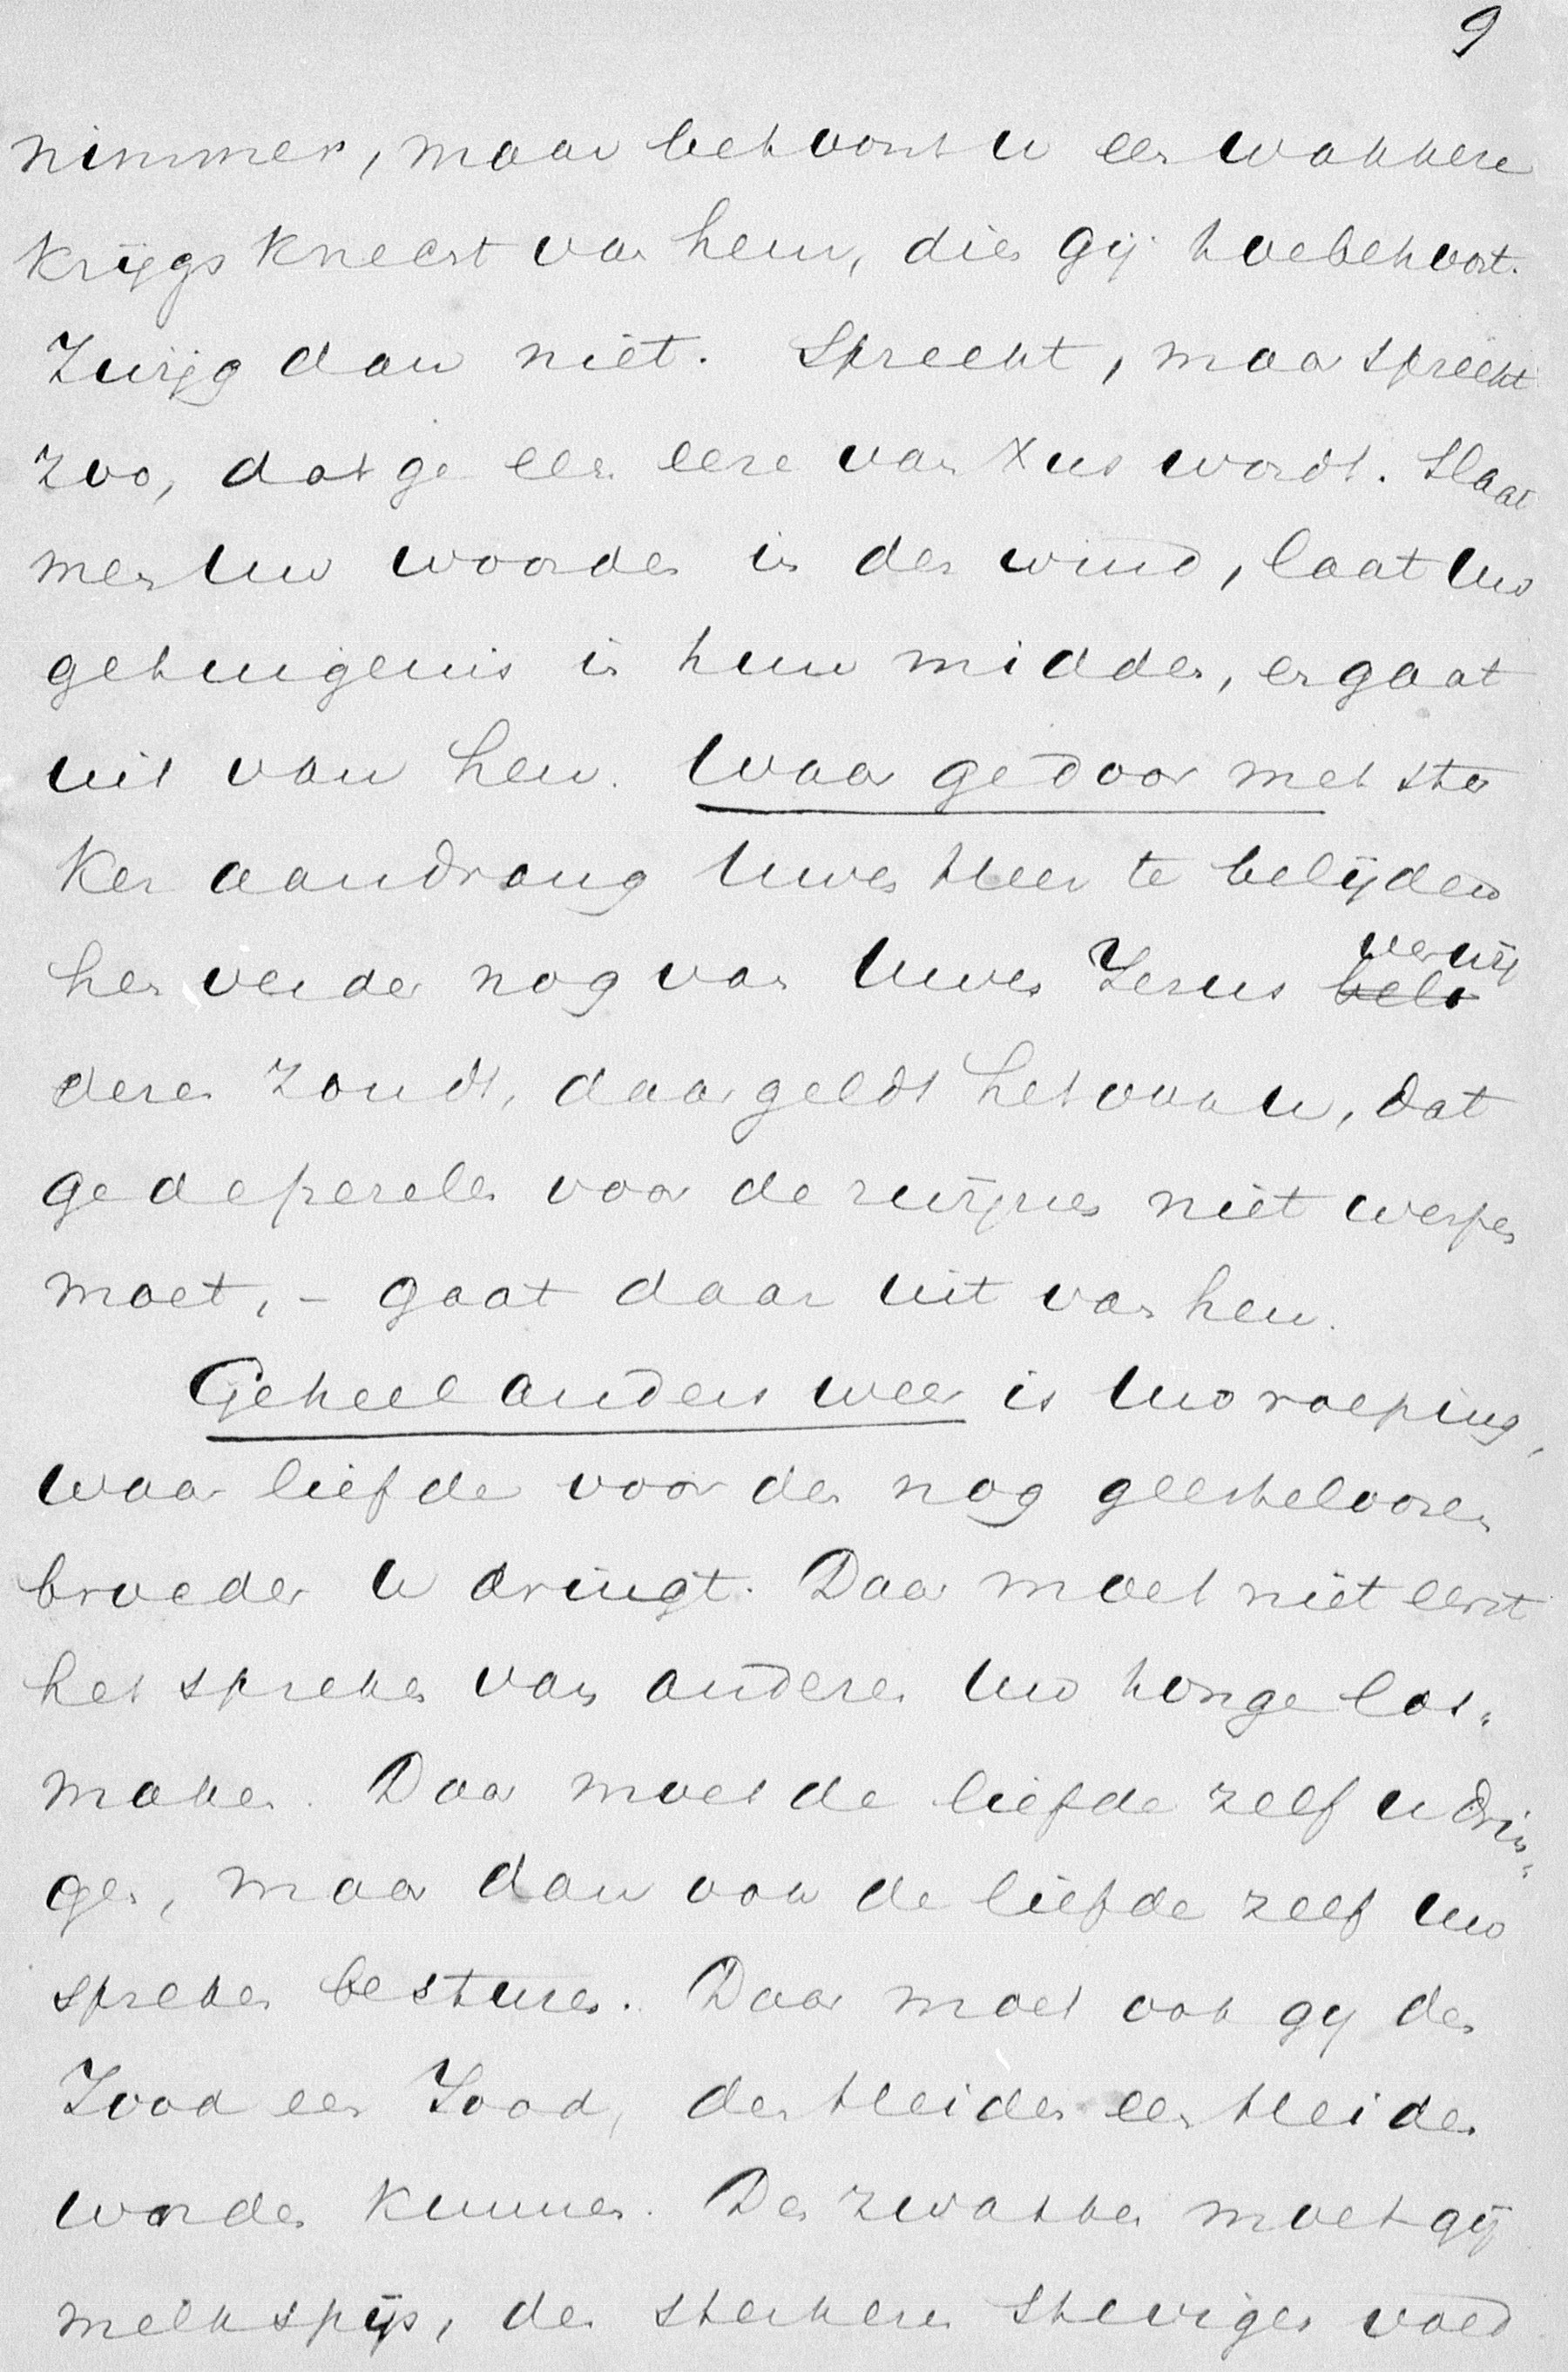 9
nimmer, maar betoont u een wakkere
Krijgsknecht van hem, dien gij toebehoort.
Zwijg dan niet. Spreekt, maar spreekt
zoo, dat ge een eere van Xus wordt. Slaat
men Uw woorden in den wind, laat Uw
getuigenis in hun midden, en gaat
uit van hen. Waar ge door met ster
ker aandrang Uwen Heer te belijden
hen verder nog van Uwen Jezus verwij
belo
deren zoudt, daar geldt het ook u, dat
ge de perelen voor de zwijnen niet werpen
moet, - gaat daar uit van hen.
Geheel anders weer is Uw roeping,
waar liefde voor den nog geesteloozen
broeder U dringt. Daar moet niet eerst
het spreken van anderen Uw tonge los„
maken. Daar moet de liefde zelf u drin„
gen, maar dan ook de liefde zelf Uw
spreken besturen. Daar moet ook gij den
Jood een Jood, den Heiden een Heiden
worden kunnen. De zwakken moet gij
melkspijs, den sterkeren steviger voed